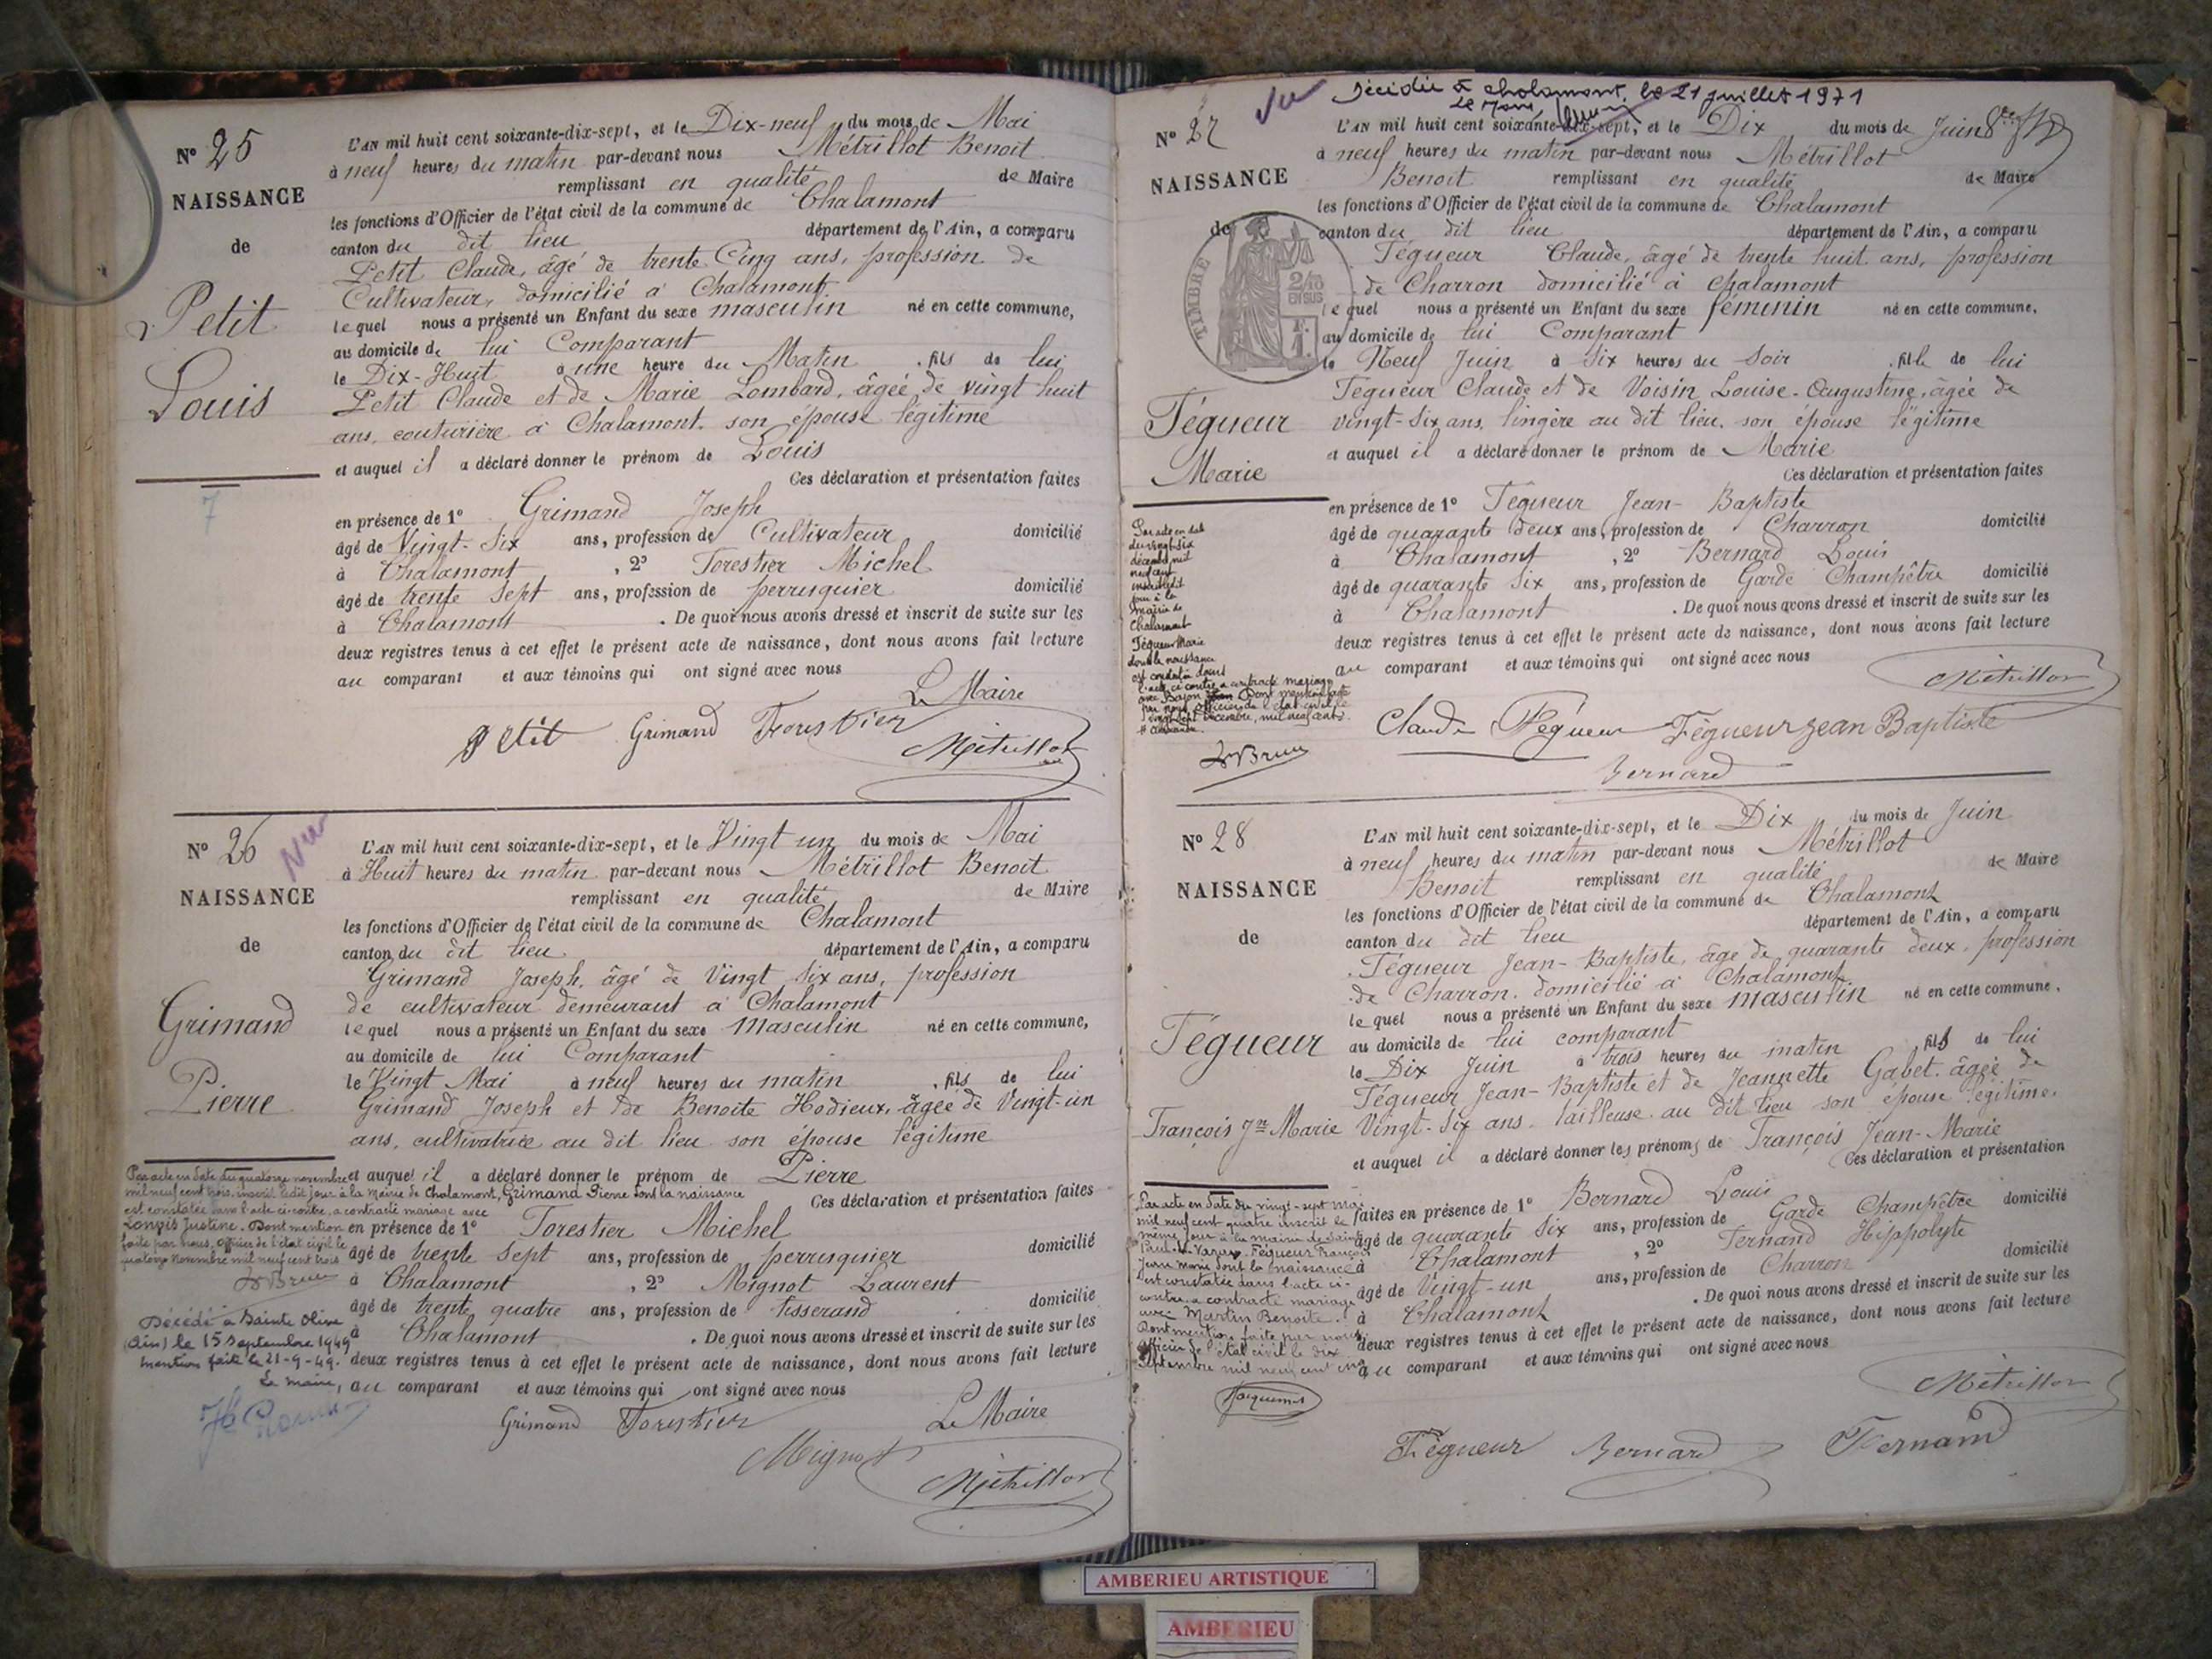 N° 25
NAISSANCE
de
Petit
Louis
7
L'AN mil huit cent soixante-dix-sept, et le Dix-neuf du mois de Mai
à neuf heures du matin par-devant nous Métrillot Benoit
remplissant en qualité de Maire
les fonctions d'Officier de l'état civil de la commune de Chalamont
canton du dit lieu département de l'Ain, a comparu
Petit Claude, âgé de trente Cinq ans, profession de
Cultivateur, domicilié à Chalamont
lequel nous a présenté un Enfant du sexe masculin né en cette commune,
au domicile de lui Comparant
le Dix-Huit à une heure du Matin, fils de lui
Petit Claude et de Marie Lombard, âgée de vingt huit
ans, couturière à Chalamont, son épouse légitime
et auquel il a déclaré donner le prénom de Louis
Ces déclaration et présentation faites
en présence de 1° Grimand Joseph
âgé de Vingt-Six ans, profession de Cultivateur domicilié
à Chalamont, 2° Forestier Michel
âgé de trente Sept ans, profession de perruquier domicilié
à Chalamont. De quoi nous avons dressé et inscrit de suite sur les
deux registres tenus à cet effet le présent acte de naissance, dont nous avons fait lecture
au comparant et aux témoins qui ont signé avec nous
Le Maire
Petit Grimand Forestier
Métrillot
N° 26
Vu
NAISSANCE
de
Grimand
Pierre
L'AN mil huit cent soixante-dix-sept, et le Vingt un du mois de Mai
à Huit heures du matin par-devant nous Métrillot Benoit
remplissant en qualité de Maire
les fonctions d'Officier de l'état civil de la commune de Chalamont
canton du dit lieu département de l'Ain, a comparu
Grimand Joseph, âgé de Vingt Six ans, profession
de cultivateur demeurant à Chalamont
lequel nous a présenté un Enfant du sexe Masculin né en cette commune,
au domicile de lui Comparant
le Vingt Mai à neuf heures du matin, fils de lui
Grimand Joseph et de Benoite Hodieux, âgée de Vingt-un
ans, cultivatrice au dit lieu son épouse légitime
et auquel il a déclaré donner le prénom de Pierre
Ces déclaration et présentation faites
en présence de 1° Forestier Michel
âgé de trente Sept ans, profession de perruquier domicilié
à Chalamont, 2° Mignot Laurent
âgé de trente quatre ans, profession de Tisserand domicilié
à Chalamont. De quoi nous avons dressé et inscrit de suite sur les
deux registres tenus à cet effet le présent acte de naissance, dont nous avons fait lecture
au comparant et aux témoins qui ont signé avec nous
Grimand Forestier Le Maire
Mignot
Métrillot
Par acte en date du quatorze novembre
mil neuf cent trois, inscrit ledit jour à la Mairie de Chalamont, Grimand Pierre dont la naissance
est constatée dans l'acte ci-contre, a contracté mariage avec
Longis Justine. Dont mention
faite par Nous, Officier de l'état civil le
quatorze Novembre mil neuf cent trois
Décédé à Sainte Olive
(Ain) le 15 septembre 1949
mention faite le 21-9-49.
Le maire,
Vu
Décédée à Chalamont, le 21 juillet 1971
Le Maire
N° 27
NAISSANCE
de
TIMBRE
2/10
EN SUS
Fégueur
Marie
L'AN mil huit cent soixante-dix-sept, et le Dix du mois de Juin
à neuf heures du matin par-devant nous Métrillot
Benoit remplissant en qualité de Maire
les fonctions d'Officier de l'état civil de la commune de Chalamont
canton du dit lieu département de l'Ain, a comparu
Fégueur Claude, âgé de trente huit ans, profession
de Charron domicilié à Chalamont
lequel nous a présenté un Enfant du sexe féminin né en cette commune,
au domicile de lui Comparant
le Neuf Juin à Six heures du Soir, fille de lui
Fégueur Claude et de Voisin Louise-Augustine, âgée de
vingt-Six ans, lingère au dit lieu, son épouse légitime
et auquel il a déclaré donner le prénom de Marie
Ces déclaration et présentation faites
en présence de 1° Fégueur Jean-Baptiste
âgé de quarante deux ans, profession de Charron domicilié
à Chalamont, 2° Bernard Louis
âgé de quarante Six ans, profession de Garde Champêtre domicilié
à Chalamont. De quoi nous avons dressé et inscrit de suite sur les
deux registres tenus à cet effet le présent acte de naissance, dont nous avons fait lecture
au comparant et aux témoins qui ont signé avec nous
Métrillot
Claude Fégueur Fégueur Jean Baptiste
Bernard
Par acte en date
du vingt six
décembre mil
neuf cent
inscrit ledit
jour à la
Mairie de
Chalamont
Fégueur Marie
dont la naissance
est constatée dans
l'acte ci-contre a contracté mariage
N° 28
NAISSANCE
de
Fégueur
François Jn Marie
L'AN mil huit cent soixante-dix-sept, et le Dix du mois de Juin
à neuf heures du matin par-devant nous Métrillot
Benoit remplissant en qualité de Maire
les fonctions d'Officier de l'état civil de la commune de Chalamont
canton du dit lieu département de l'Ain, a comparu
Fégueur Jean-Baptiste, âgé de quarante deux, profession
de Charron, domicilié à Chalamont
lequel nous a présenté un Enfant du sexe masculin né en cette commune,
au domicile de lui comparant
le Dix Juin à trois heures du matin, fils de lui
Fégueur Jean-Baptiste et de Jeannette Gabet, âgée de
Vingt-Six ans, tailleuse au dit lieu son épouse légitime.
et auquel il a déclaré donner les prénoms de François Jean-Marie
Ces déclaration et présentation
faites en présence de 1° Bernard Louis
âgé de quarante Six ans, profession de Garde Champêtre domicilié
à Chalamont, 2° Fernand Hippolyte
âgé de Vingt-un ans, profession de Charron domicilié
à Chalamont. De quoi nous avons dressé et inscrit de suite sur les
deux registres tenus à cet effet le présent acte de naissance, dont nous avons fait lecture
au comparant et aux témoins qui ont signé avec nous
Métrillot
Fégueur Bernard Fernand
Par acte en date du vingt-sept mai
mil neuf cent quatre inscrit le
même jour à la mairie de Saint
Paul de Varax, Fégueur François
Jean Marie dont la naissance
est constatée dans l'acte ci-
contre a contracté mariage
avec Martin Benoite.
Dont mention faite par nous
officier de l'état civil le dix
septembre mil neuf cent cinq
AMBERIEU ARTISTIQUE
AMBERIEU